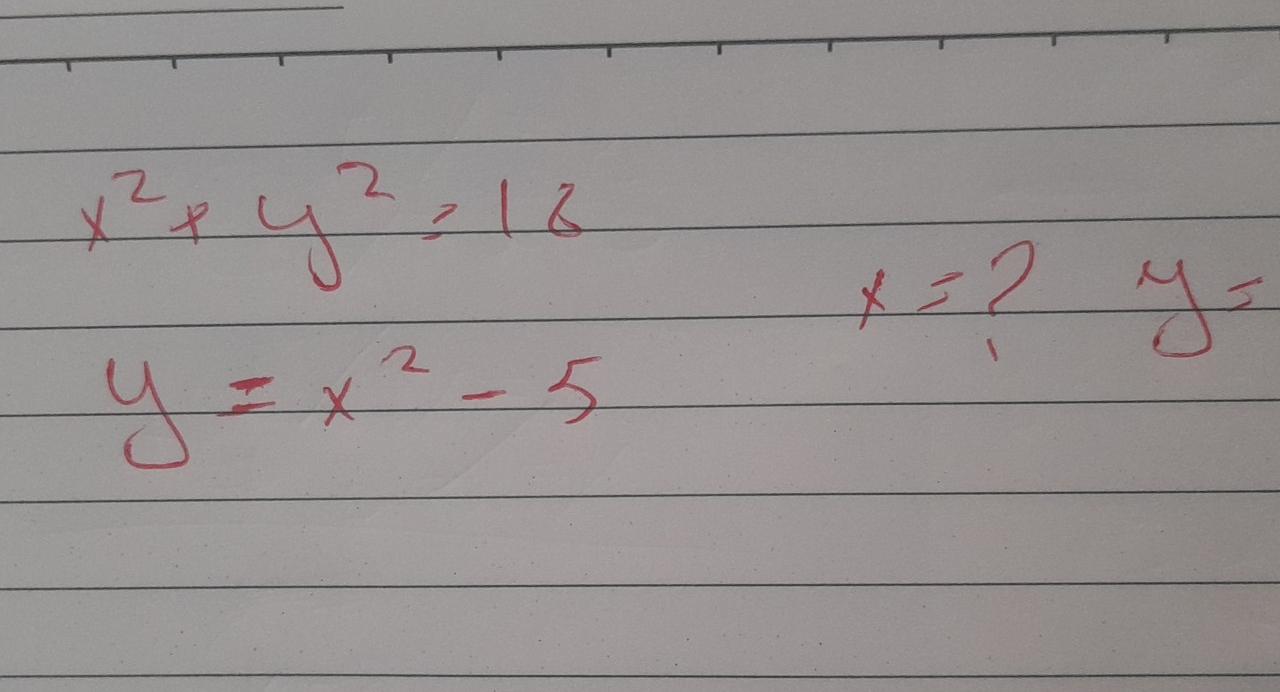 x² + y² = 16
x = ? y =
y = x² - 5